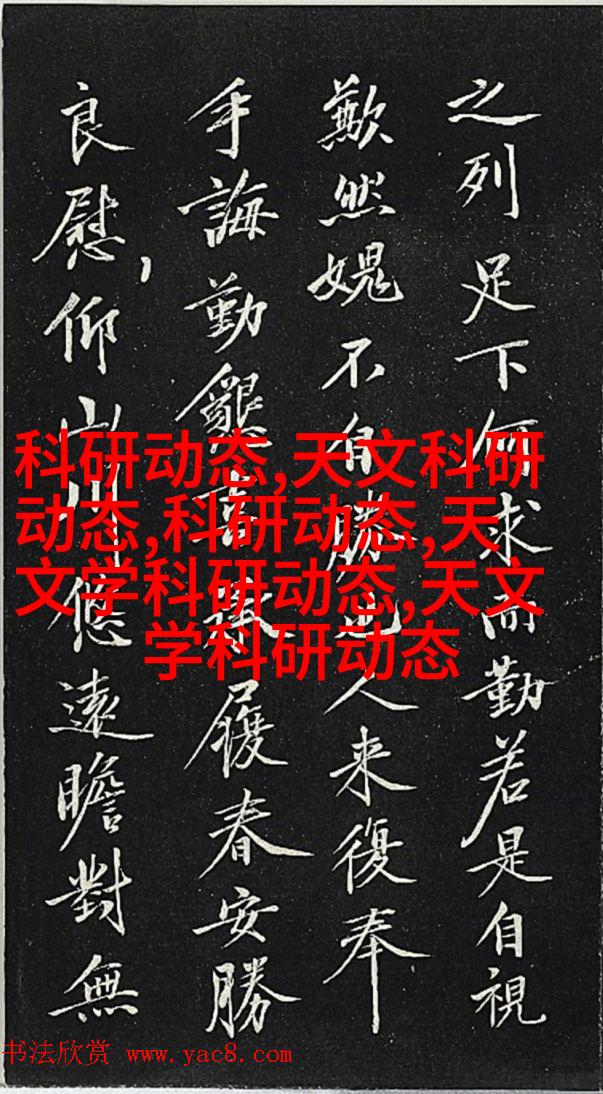 之列足下何求而勤若是自視
歉然媿不自勝也人来復奉
手誨勤懇喜履春安勝
良慰仰山川悠遠瞻對無
科研动态,天文科研
动态,科研动态,天
文学科研动态,天文
学科研动态
书法欣赏 www.yac8.com